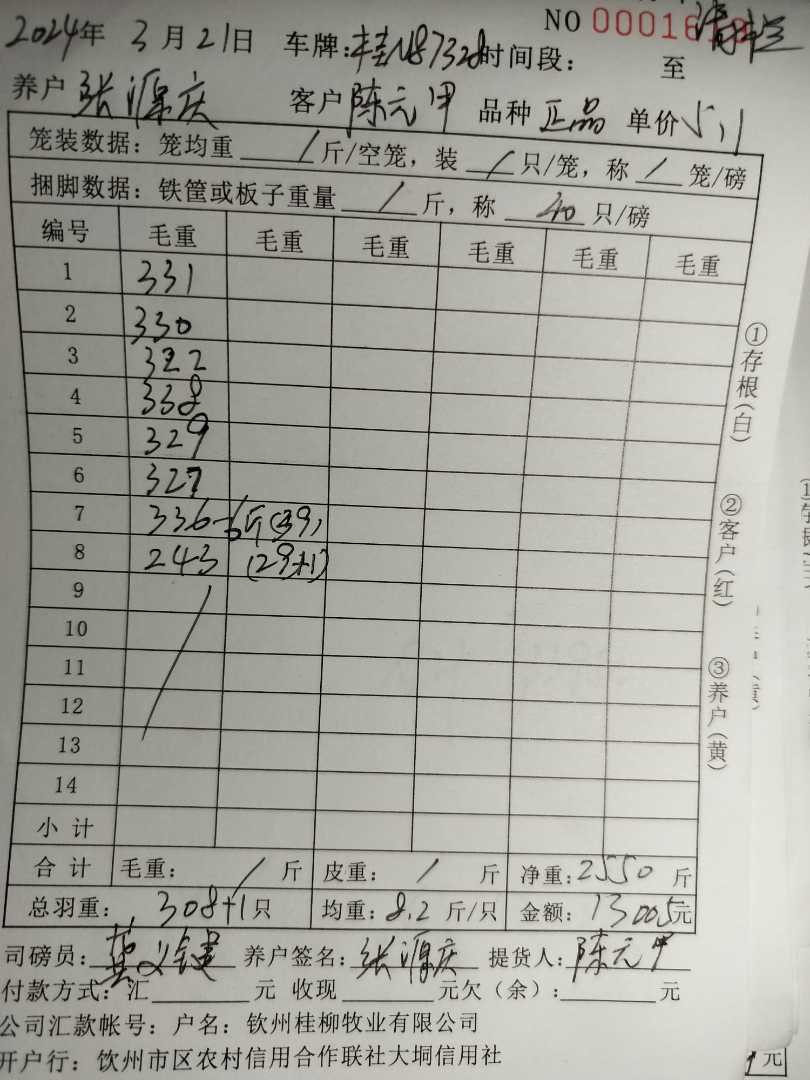 NO 0001638 清栏
2024年 3月21日 车牌:桂N87328 时间段: 至
养户 张源庆 客户 陈元甲 品种 正品 单价 5.1
笼装数据:笼均重 / 斤/空笼,装 / 只/笼,称 / 笼/磅
捆脚数据:铁筐或板子重量 / 斤,称 40 只/磅
编号 毛重 毛重 毛重 毛重 毛重 毛重
1 331
2 330
3 322
4 338
5 329
6 327
7 336-6斤(39)
8 243 (29+1)
9
10
11
12
13
14
小计
合计 毛重: / 斤 皮重: / 斤 净重:2550斤
总羽重: 308+1只 均重:8.2斤/只 金额:13005元
司磅员: 义健 养户签名:张源庆 提货人:陈元甲
付款方式:汇 元 收现 元欠(余): 元
公司汇款帐号:户名:钦州桂柳牧业有限公司
开户行:钦州市区农村信用合作联社大垌信用社
①存根(白)
②客户(红)
③养户(黄)
元